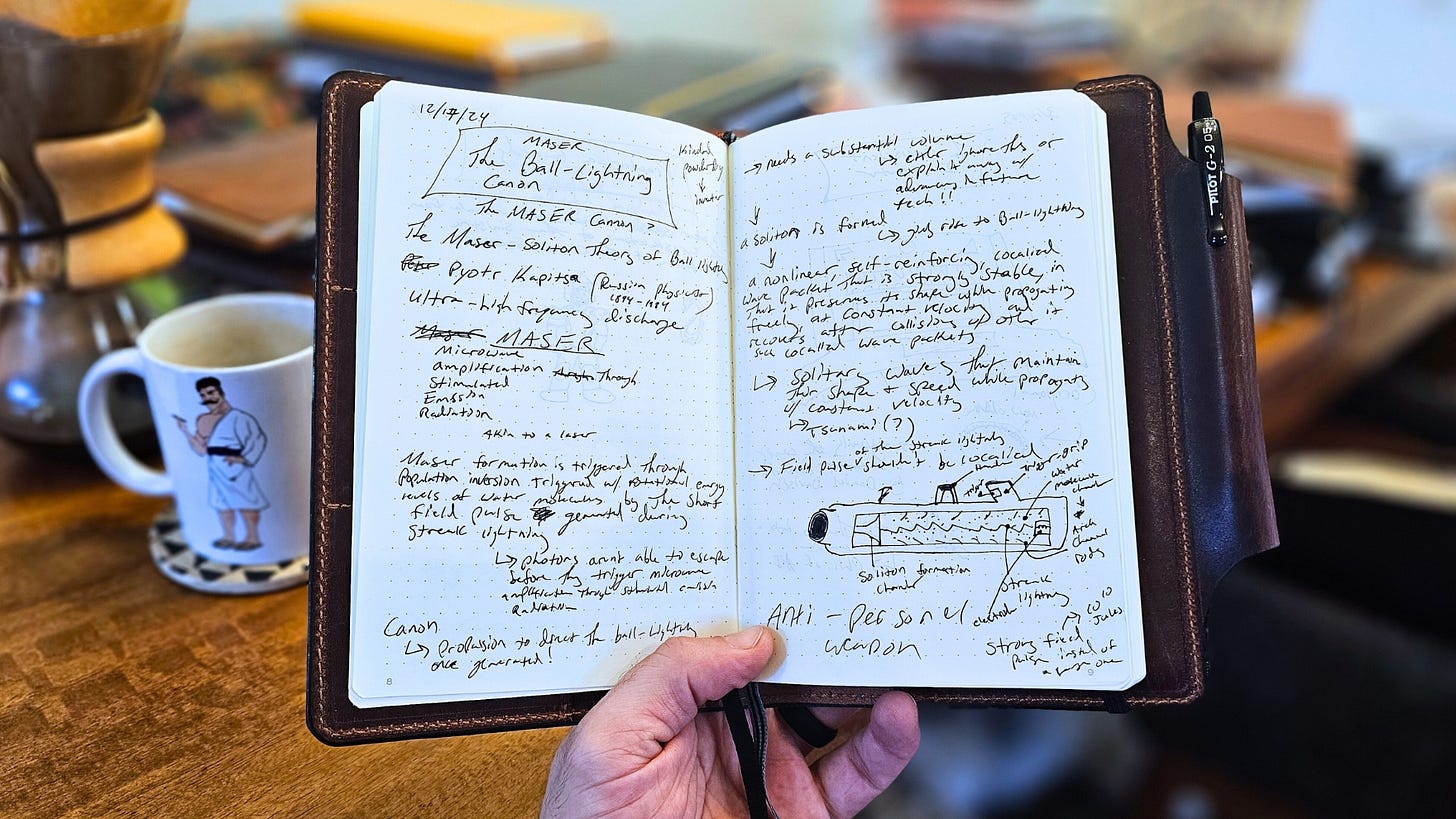 12/17/24
MASER
The Ball-Lightning
Canon
The MASER Cannon?
The Maser-Soliton Theory of Ball lightning
Pyotr Kapitsa (Russian Physicist)
1894-1984
Ultra-high frequency discharge
MASER
Microwave
Amplification Through
Stimulated
Emission
Radiation
Akin to a laser
Maser formation is triggered through
Population inversion triggered w/ rotational energy
levels of water molecules by the short
field pulse generated during
streak lightning
↳ photons aren't able to escape
before they trigger microwave
amplification through stimulated emission
Radiation
Canon
↳ Propulsion to direct the ball-lightning
once generated!
8
→ needs a substantial volume
↳ either ignore this or
explain it away w/
advancing in future
tech!!
↓
a soliton is formed
↳ gives rise to Ball-lightning
↓
a nonlinear, self-reinforcing, localized
wave packet that is strongly stable, in
that it preserves its shape while propogating
freely, at constant velocity, and
recovers after collisions w/ other
such localized wave packets
↳ Solitary waves that maintain
their shape + speed while propogating
w/ constant velocity
↳ Tsunami(?)
of the streak lightning
→ Field pulse shouldn't be localized
trigger grip
water
molecule
chamber
↓
Arch
Channel
Rods
soliton formation
chamber
streak
lightning
electrode
Anti-Personel
weapon
→ 10 10
Joules
Strong field
pulse instead of
a weak one
9
PILOT G-2 05